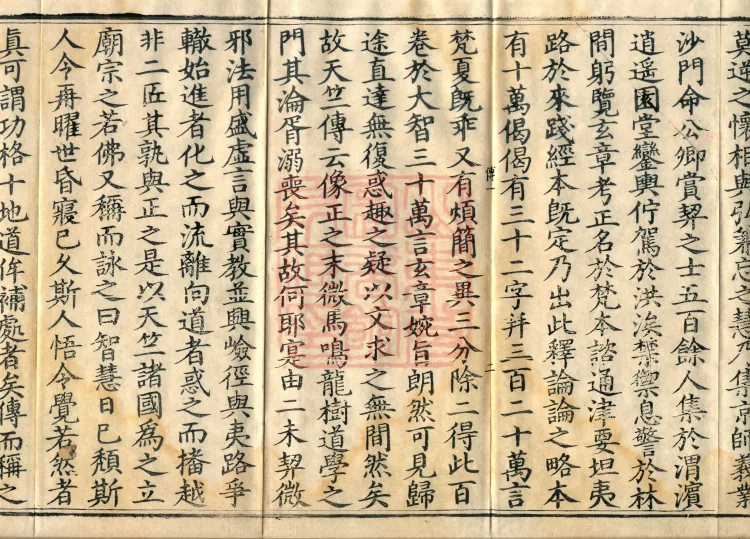 莫逆之懷相與弘兼忘之慧乃集京師義業
沙門命公卿賞契之士五百餘人集於渭濱
逍遥園堂鑾輿佇駕於洪涘禁禦息警於林
間躬覽玄章考正名於梵本諮通津要坦夷
路於來踐經本旣定乃出此釋論論之略本
有十萬偈偈有三十二字并三百二十萬言
梵夏旣乖又有煩簡之異三分除二得此百
卷於大智三十萬言玄章婉旨朗然可見歸
途直達無復惑趣之疑以文求之無間然矣
故天竺傳云像正之末微馬鳴龍樹道學之
門其淪胥溺喪矣其故何耶寔由二未契微
邪法用盛虛言與實教並興嶮徑與夷路爭
轍始進者化之而流離向道者惑之而播越
非二匠其孰與正之是以天竺諸國爲之立
廟宗之若佛又稱而詠之曰智慧日已頹斯
人令再曜世昏寢已久斯人悟令覺若然者
眞可謂功格十地道侔補處者矣傳而稱之